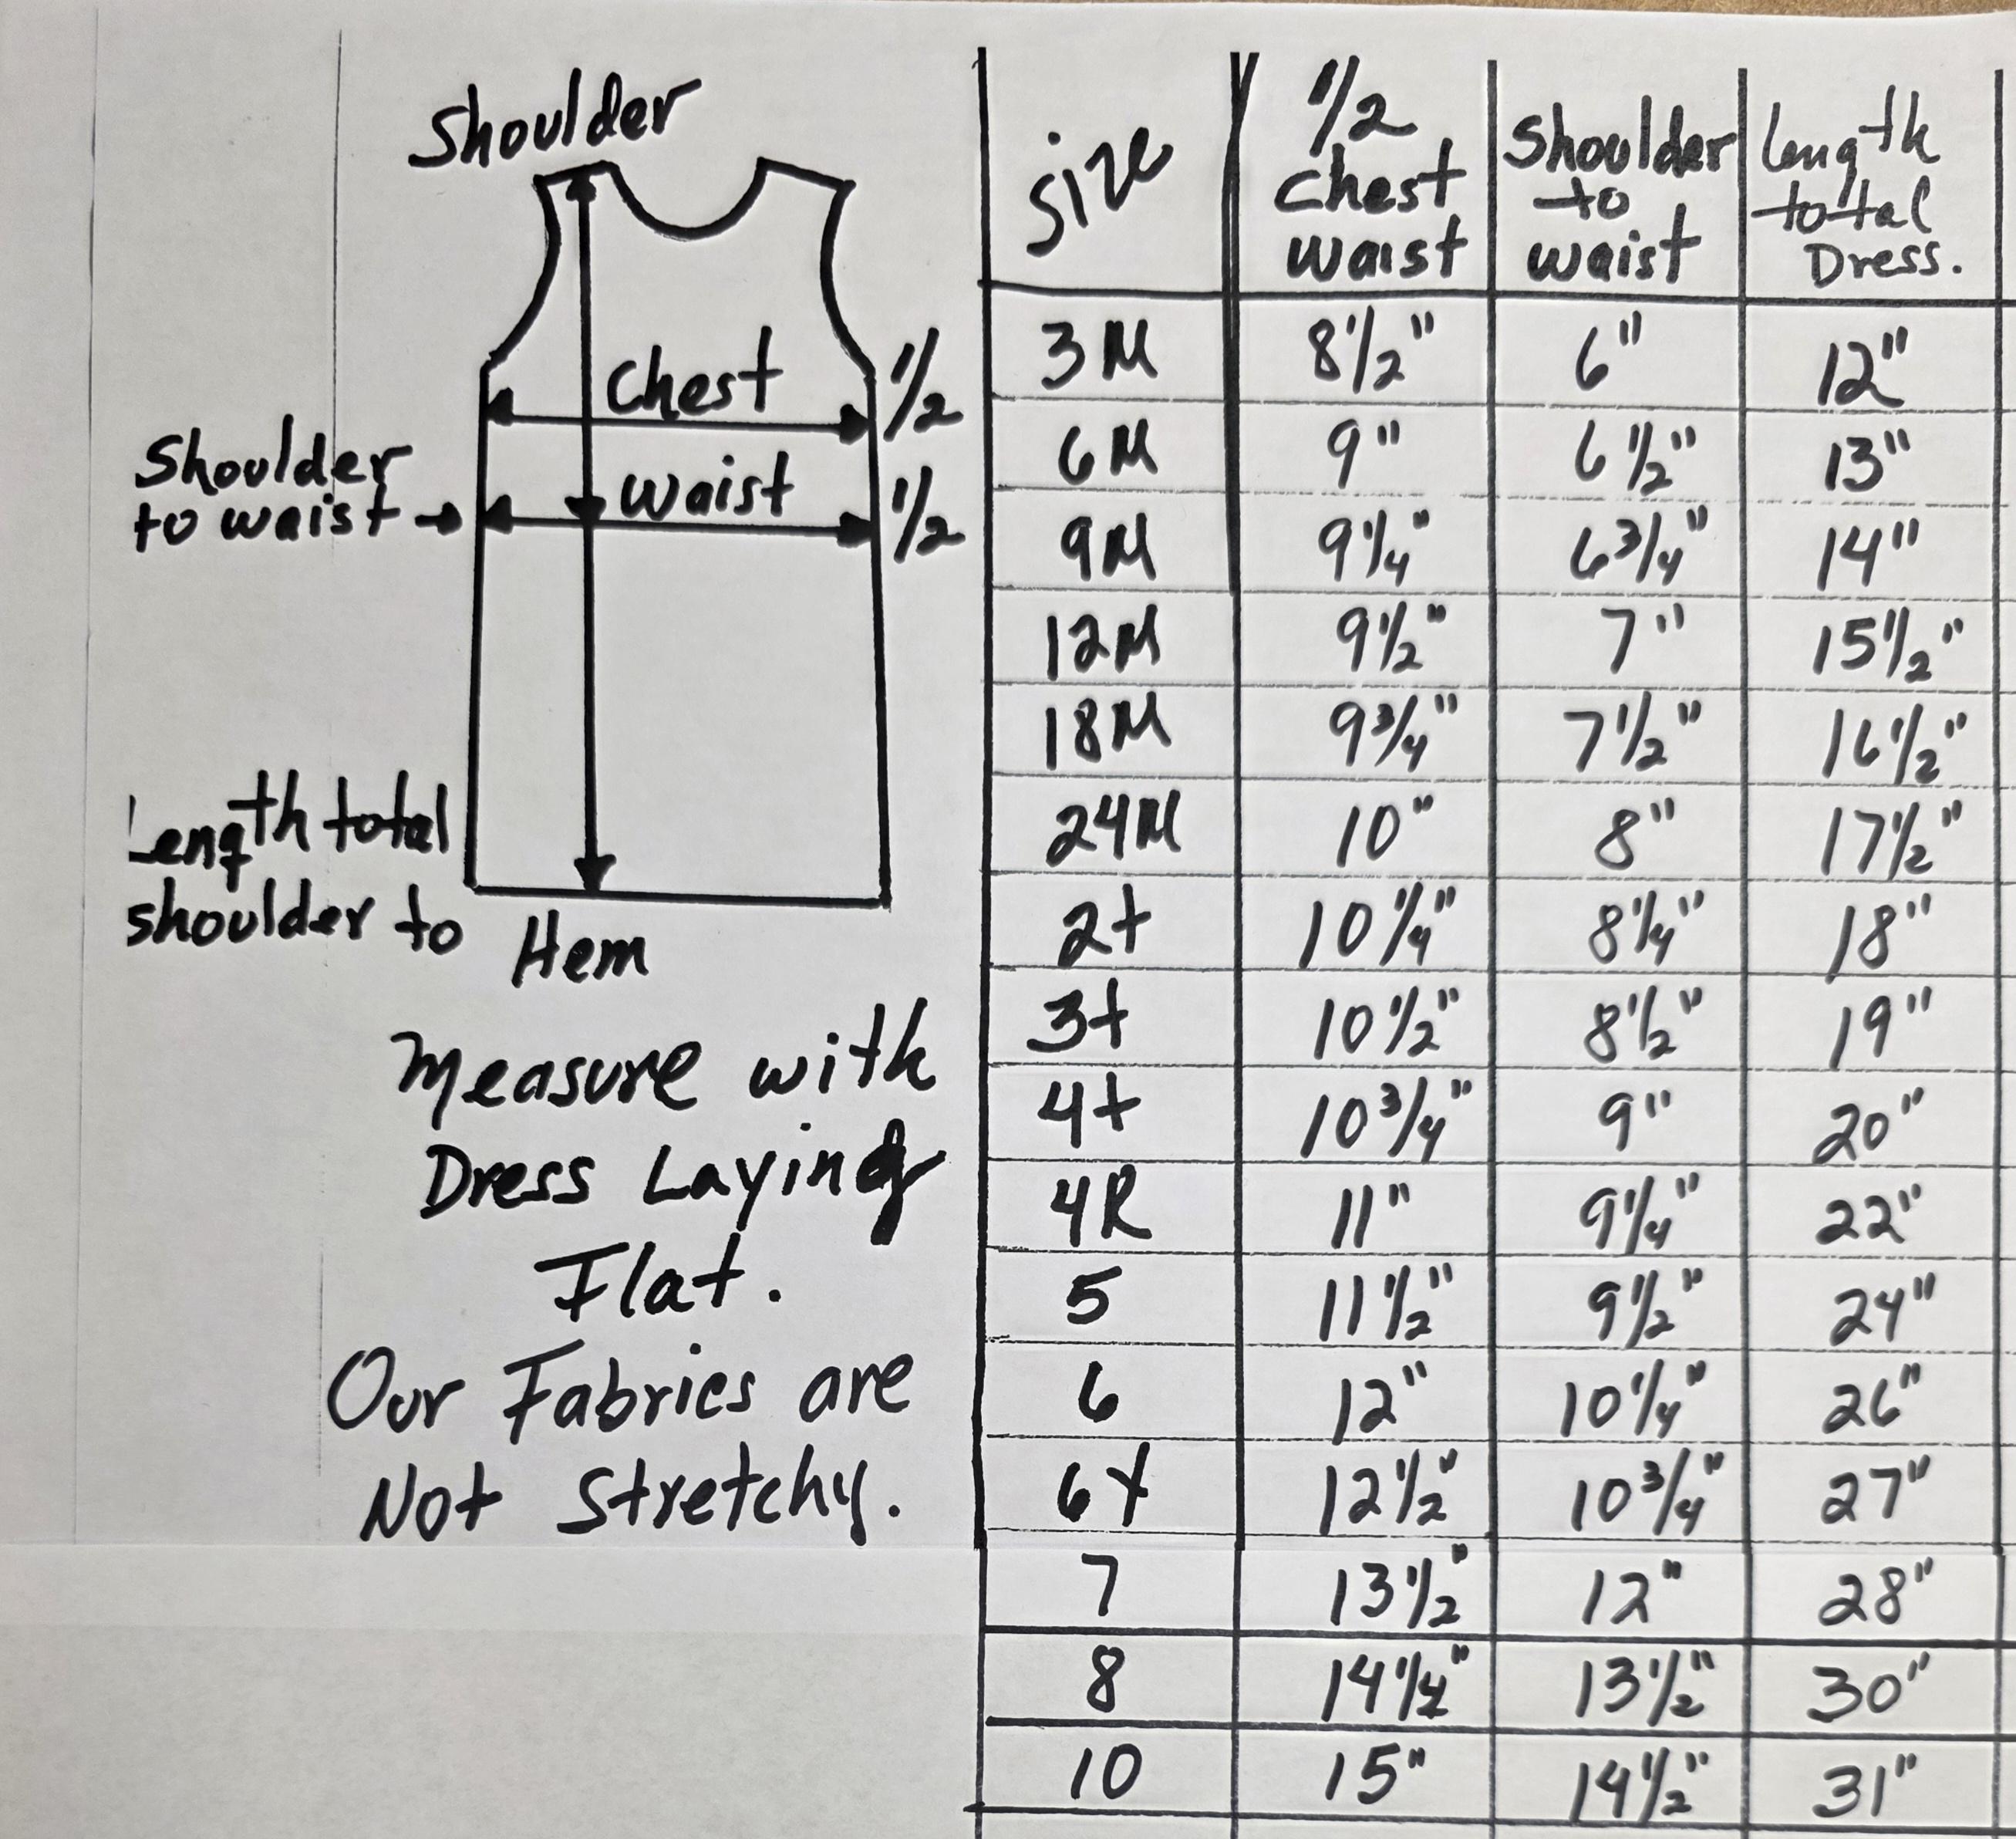 Shoulder
Chest 1/2
Shoulder
to waist → waist 1/2
Length total
shoulder to Hem
Measure with
Dress Laying
Flat.
Our Fabrics are
Not Stretchy.
Size | 1/2 Chest waist | Shoulder to waist | Length total Dress.
3M | 8 1/2" | 6" | 12"
6M | 9" | 6 1/2" | 13"
9M | 9 1/4" | 6 3/4" | 14"
12M | 9 1/2" | 7" | 15 1/2"
18M | 9 3/4" | 7 1/2" | 16 1/2"
24M | 10" | 8" | 17 1/2"
2t | 10 1/4" | 8 1/4" | 18"
3t | 10 1/2" | 8 1/2" | 19"
4t | 10 3/4" | 9" | 20"
4R | 11" | 9 1/4" | 22"
5 | 11 1/2" | 9 1/2" | 24"
6 | 12" | 10 1/4" | 26"
6X | 12 1/2" | 10 3/4" | 27"
7 | 13 1/2" | 12" | 28"
8 | 14 1/4" | 13 1/2" | 30"
10 | 15" | 14 1/2" | 31"